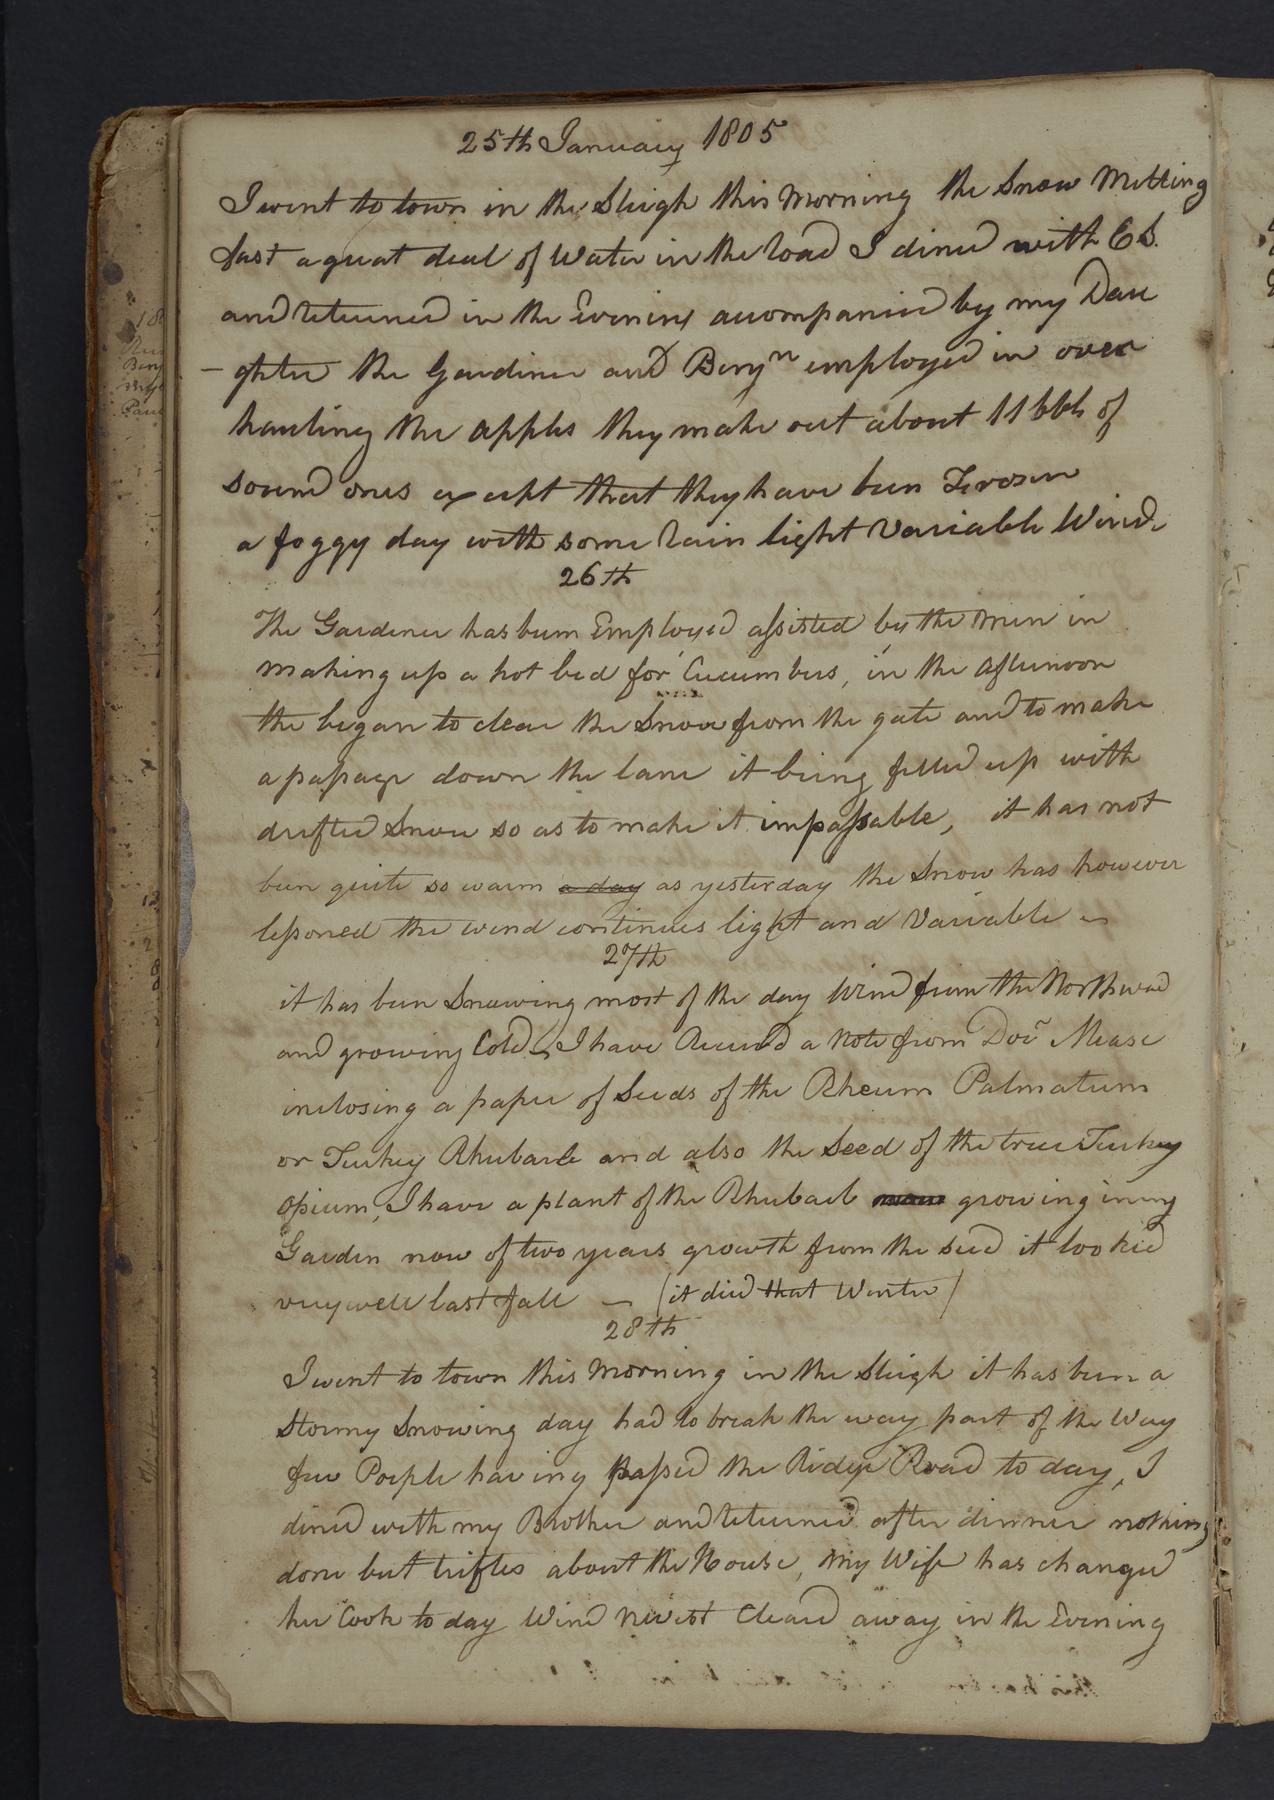 25th January 1805
I went to town in the Sleigh this Morning the Snow Melting
fast a great deal of Water in the road I dined with CS.
and returned in the Evening accompanied by my Dau
-ghter the Gardiner and Benjn employed in over
hauling the apples they make out about 11 bbls of
sound ones except that they have been Frozen
a foggy day with some rain light Variable Winds
26th
The Gardener has been Employed assisted by the Men in
making up a hot bed for Cucumbers, in the Afternoon
the began to clear the Snow from the gate and to make
a passage down the lane it being filled up with
drifted Snow so as to make it impassable, it has not
been quite so warm a day as yesterday the Snow has however
lessoned the wind continues light and Variable
27th
it has been Snowing most of the day Wind from the Northward
and growing Cold, I have Received a Note from Docr Mease
inclosing a paper of Seeds of the Rheum Palmatum
or Turkey Rhubarb and also the Seed of the true Turkey
Opium, I have a plant of the Rhubarb now growing in my
Garden now of two years growth from the seed it looked
very well last fall — (it died that Winter)
28th
I went to town this Morning in the Sleigh it has been a
Stormy Snowing day had to break the way part of the Way
few People having passed the Ridge Road to day, I
dined with my Brother and returned after dinner nothing
done but trifles about the House, My Wife has changed
her Cook to day Wind NWest Cleard away in the Evening